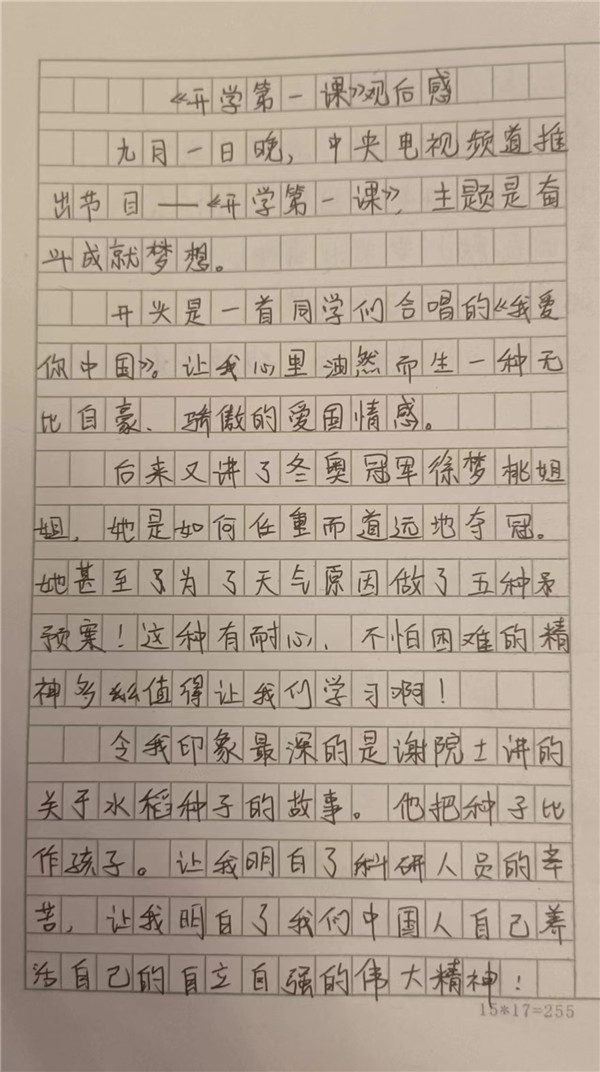 《开学第一课》观后感
九月一日晚，中央电视频道推
出节目——《开学第一课》，主题是奋
斗成就梦想。
开头是一首同学们合唱的《我爱
你中国》。让我心里油然而生一种无
比自豪、骄傲的爱国情感。
后来又讲了冬奥冠军徐梦桃姐
姐，她是如何任重而道远地夺冠。
她甚至为了天气原因做了五种
预案！这种有耐心、不怕困难的精
神多么值得让我们学习啊！
令我印象最深的是谢院士讲的
关于水稻种子的故事。他把种子比
作孩子。让我明白了科研人员的辛
苦，让我明白了我们中国人自己养
活自己的自立自强的伟大精神！
15*17=255